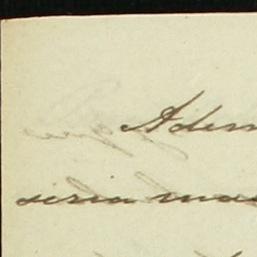 Adem
seria mas